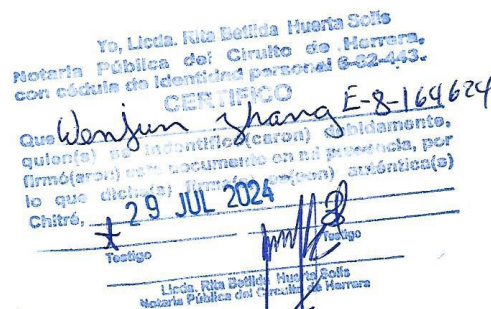 Yo, Licda. Rita Betilda Huerta Solis
Notaria Pública del Circuito de Herrera,
con cédula de identidad personal 6-82-443.
CERTIFICO
Que Wenjun Zhang E-8-164624
quien(s) se indentificó(caron) debidamente,
firmó(aron) este documento en mi presencia, por
lo que dicha(s) firma(s) es(son) auténtica(s)
Chitré, 29 JUL 2024
Testigo Testigo
Licda. Rita Betilda Huerta Solis
Notaria Pública del Circuito de Herrera